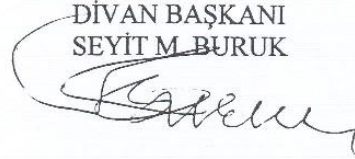 DİVAN BAŞKANI
SEYİT M. BURUK